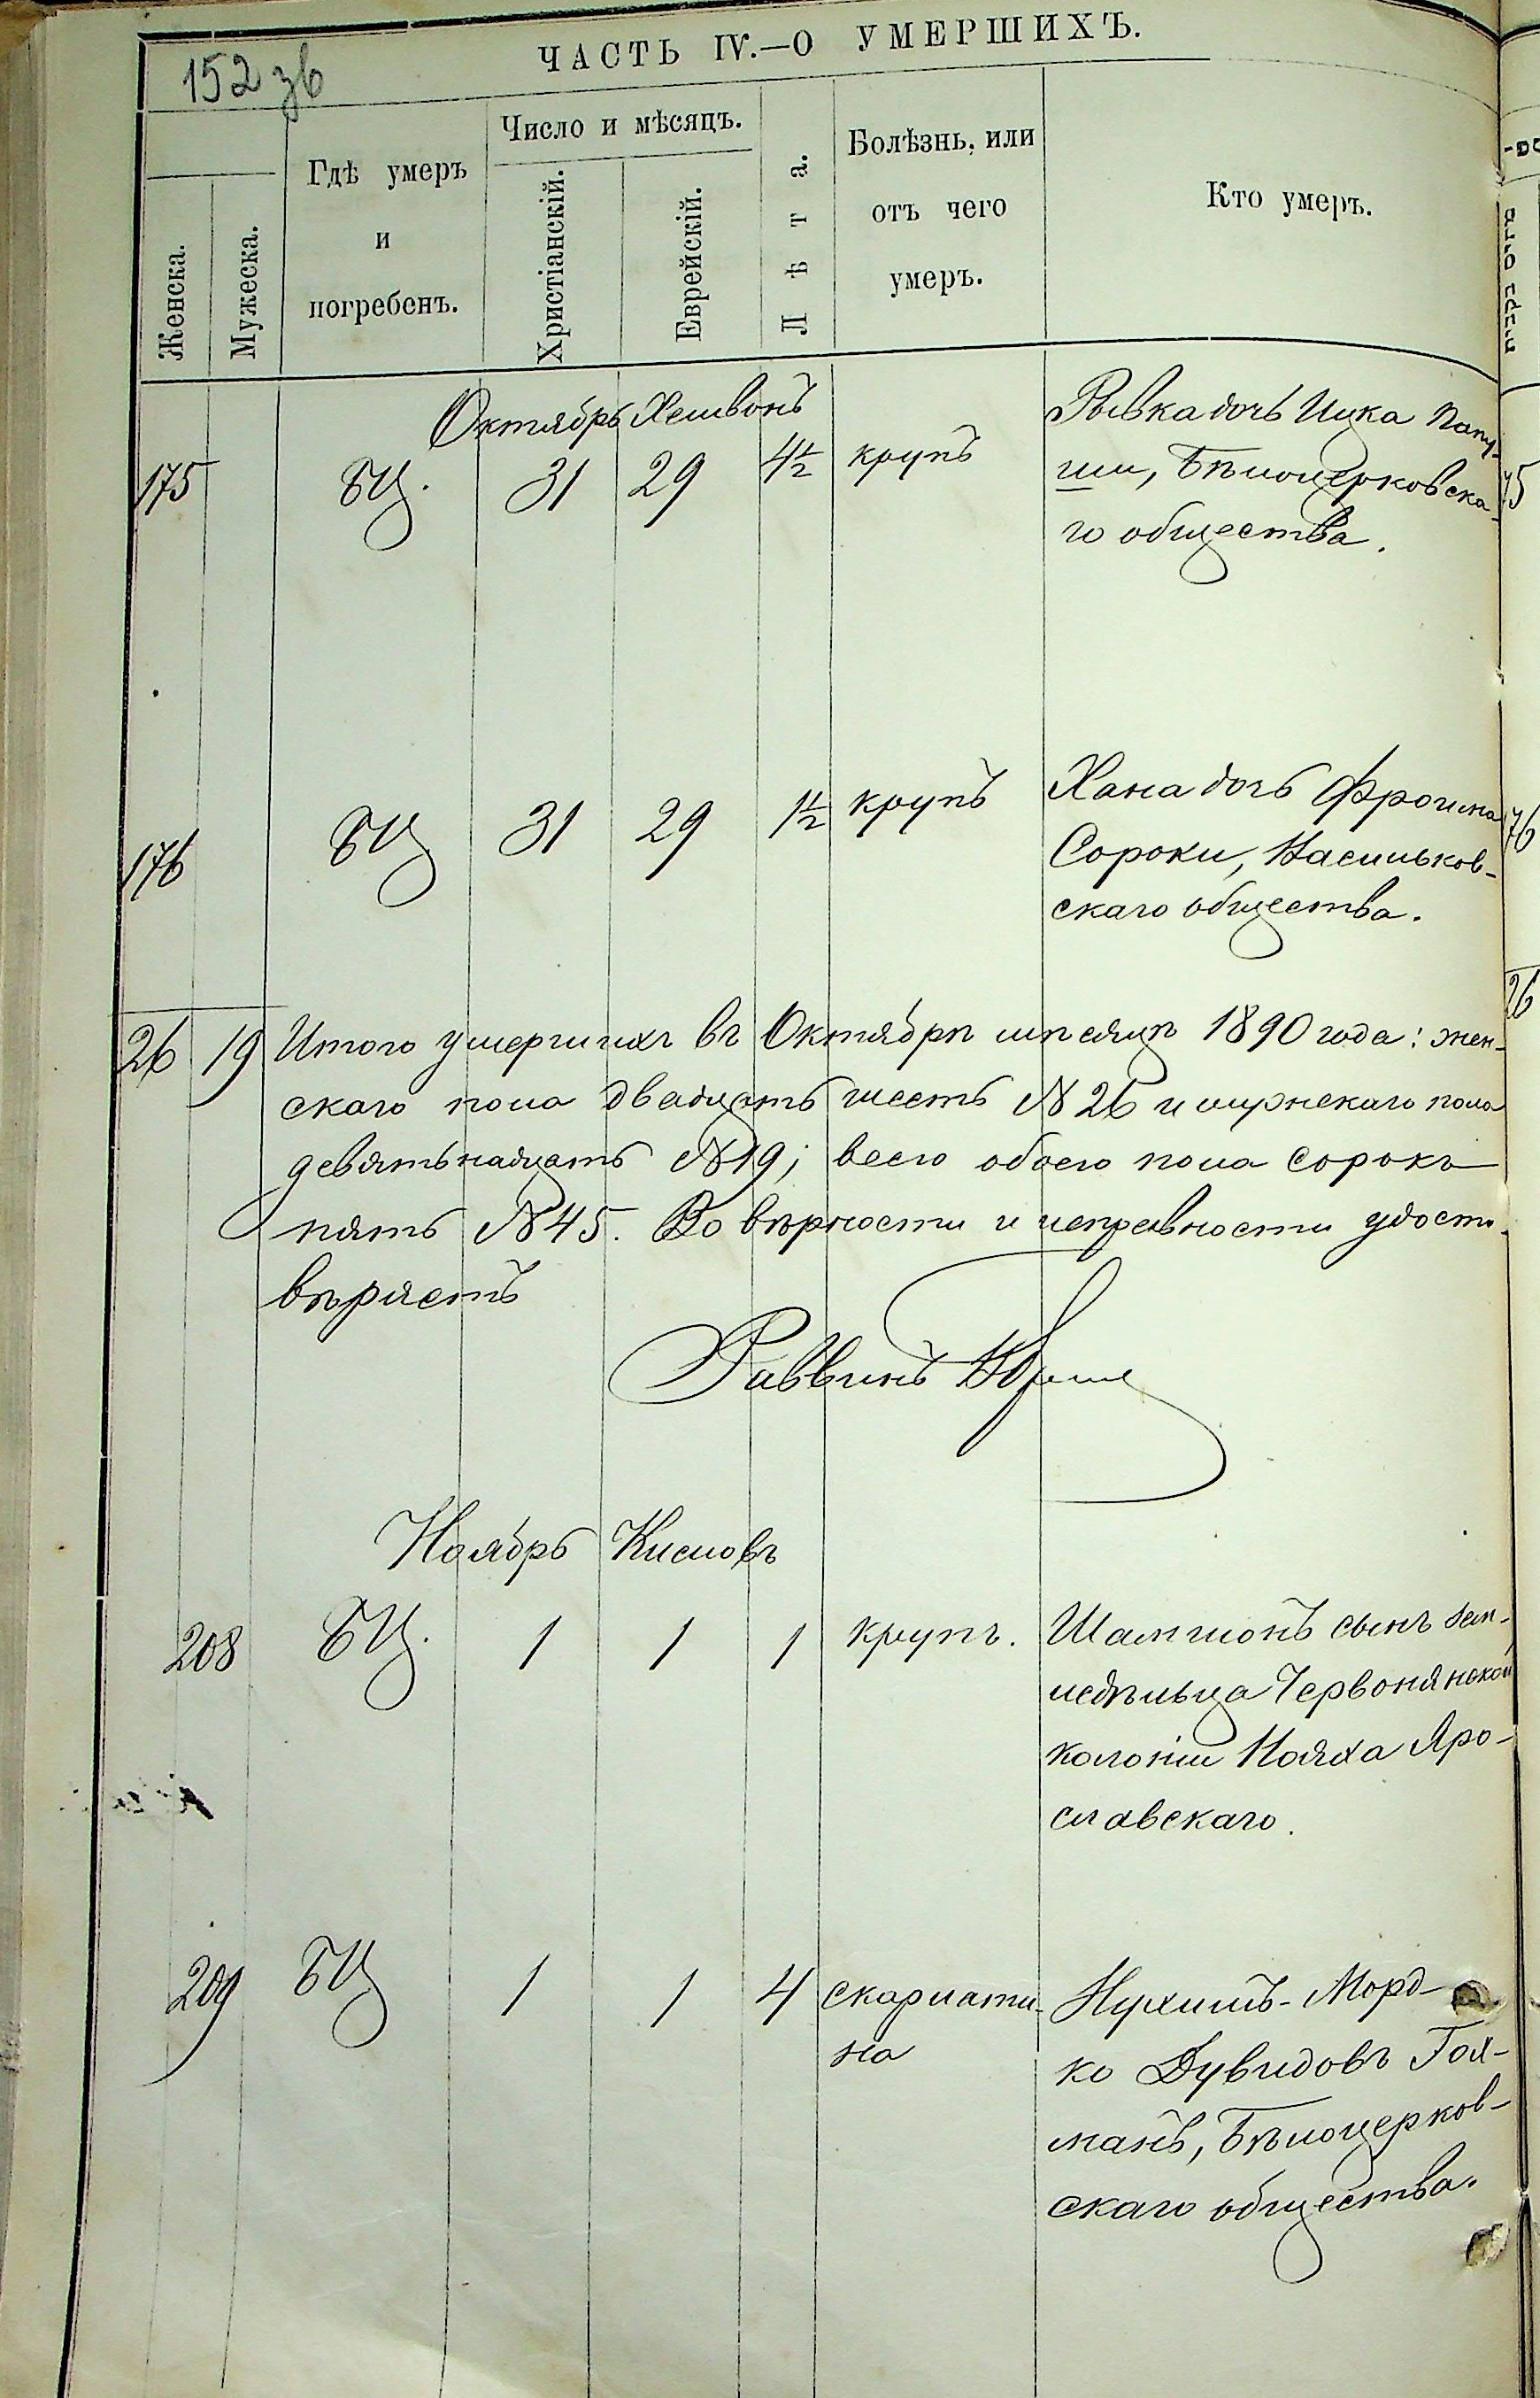 152 зв
ЧАСТЬ IV.—О УМЕРШИХЪ.
Женска.
Мужеска.
Гдѣ умеръ
и
погребенъ.
Число и мѣсяцъ.
Христіанскій.
Еврейскій.
Лѣта.
Болѣзнь, или
отъ чего
умеръ.
Кто умеръ.
Октябрь Хешвонъ
175 БЦ. 31 29 4½ крупъ Рывка дочь Ицка Папу-
ши, Бѣлоцерковска-
го общества.
176 БЦ 31 29 1½ крупъ Хана дочь Фроима
Сороки, Васильков-
скаго общества.
26 19 Итого умершихъ въ Октябрѣ мѣсяцѣ 1890 года: жен-
скаго пола двадцать шесть № 26 и мужскаго пола
девятьнадцать № 19; всего обоего пола сорокъ
пять № 45. Во вѣрности и исправности удосто-
вѣряетъ
Раввинъ
Ноябрь Кисловъ
208 БЦ. 1 1 1 крупъ. Шампіонъ сынъ зем-
ледѣльца Червонянской
колоніи Нояха Яро-
славскаго.
209 БЦ 1 1 4 скарлати- Нухимъ-Морд-
на ко Дувидовъ Гох-
манъ, Бѣлоцерков-
скаго общества.